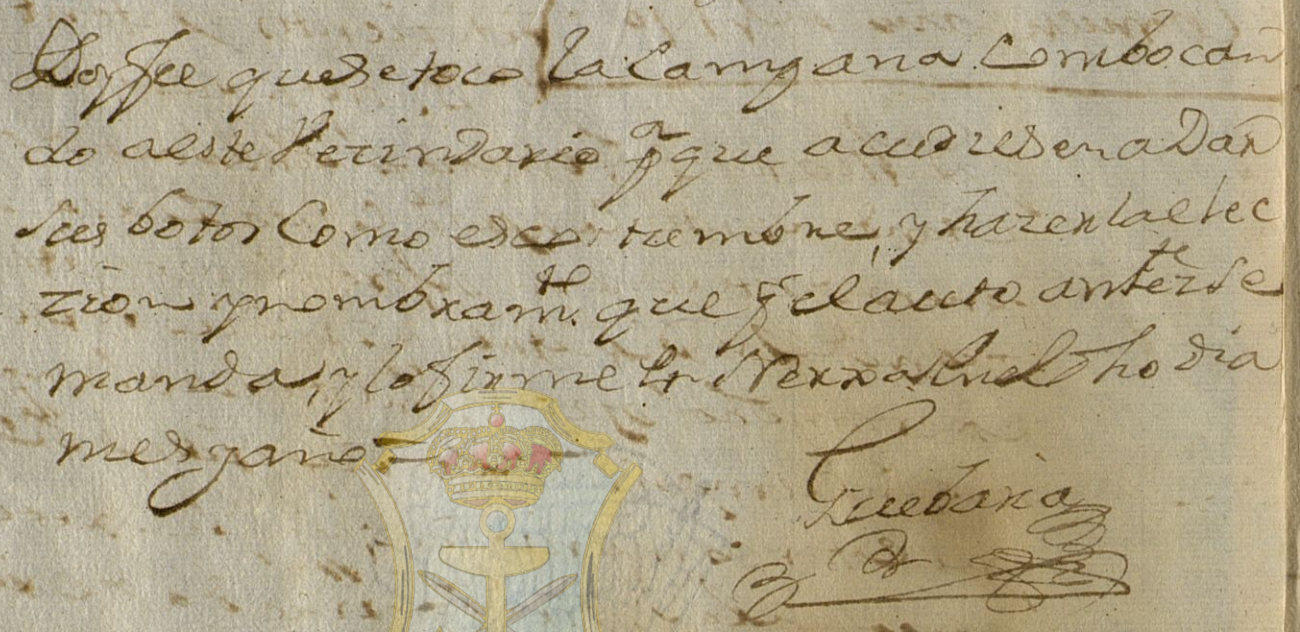 Doy fee que se toco la Campana Combocan
do a este Vecindario pa que acudiesen a Dar
sus botos Como es costumbre, y hazer la elec
zion y nombramto que pr el auto antezte se
manda, y lo firme en dho dia
mes y año
Guebara